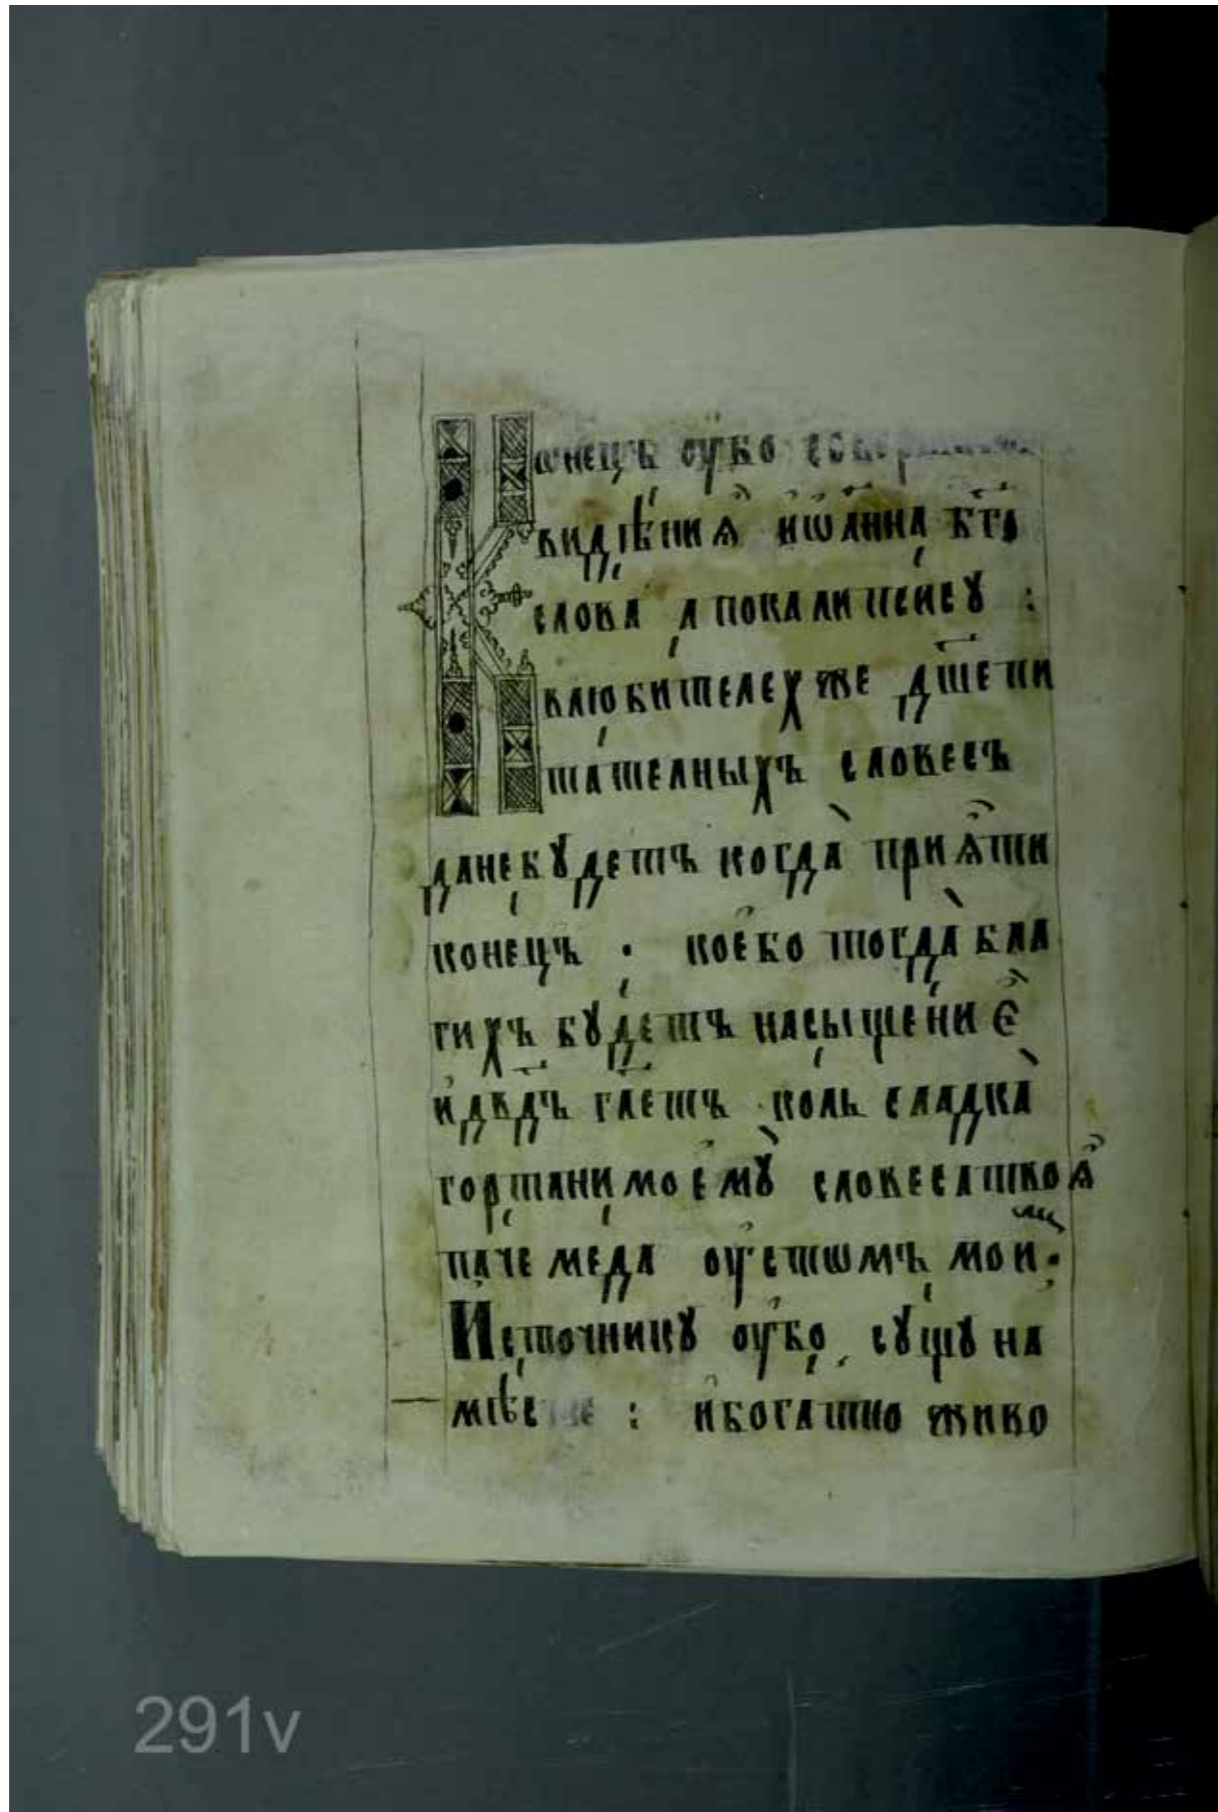 Кѡнецъ оу҆бо
видѣния҆ и҆ѡ҆анна бг҃о
слова апокалипсису :
влюбителехже дш҃епи
тателныхъ словесъ
данебудетъ когда̀ прия҆ти
конецъ · кое҆бо тогда̀ бла
гихъ будетъ насыщение҆
и҆дв҃дъ гл҃етъ коль сладка̀
гортанимое҆му̀ словесатвоя҆
паче меда оу҆стѡмъ мои҆ :
И҆сточнику оу҆бо сущу на
мѣсте : и҆богатно живо
291v